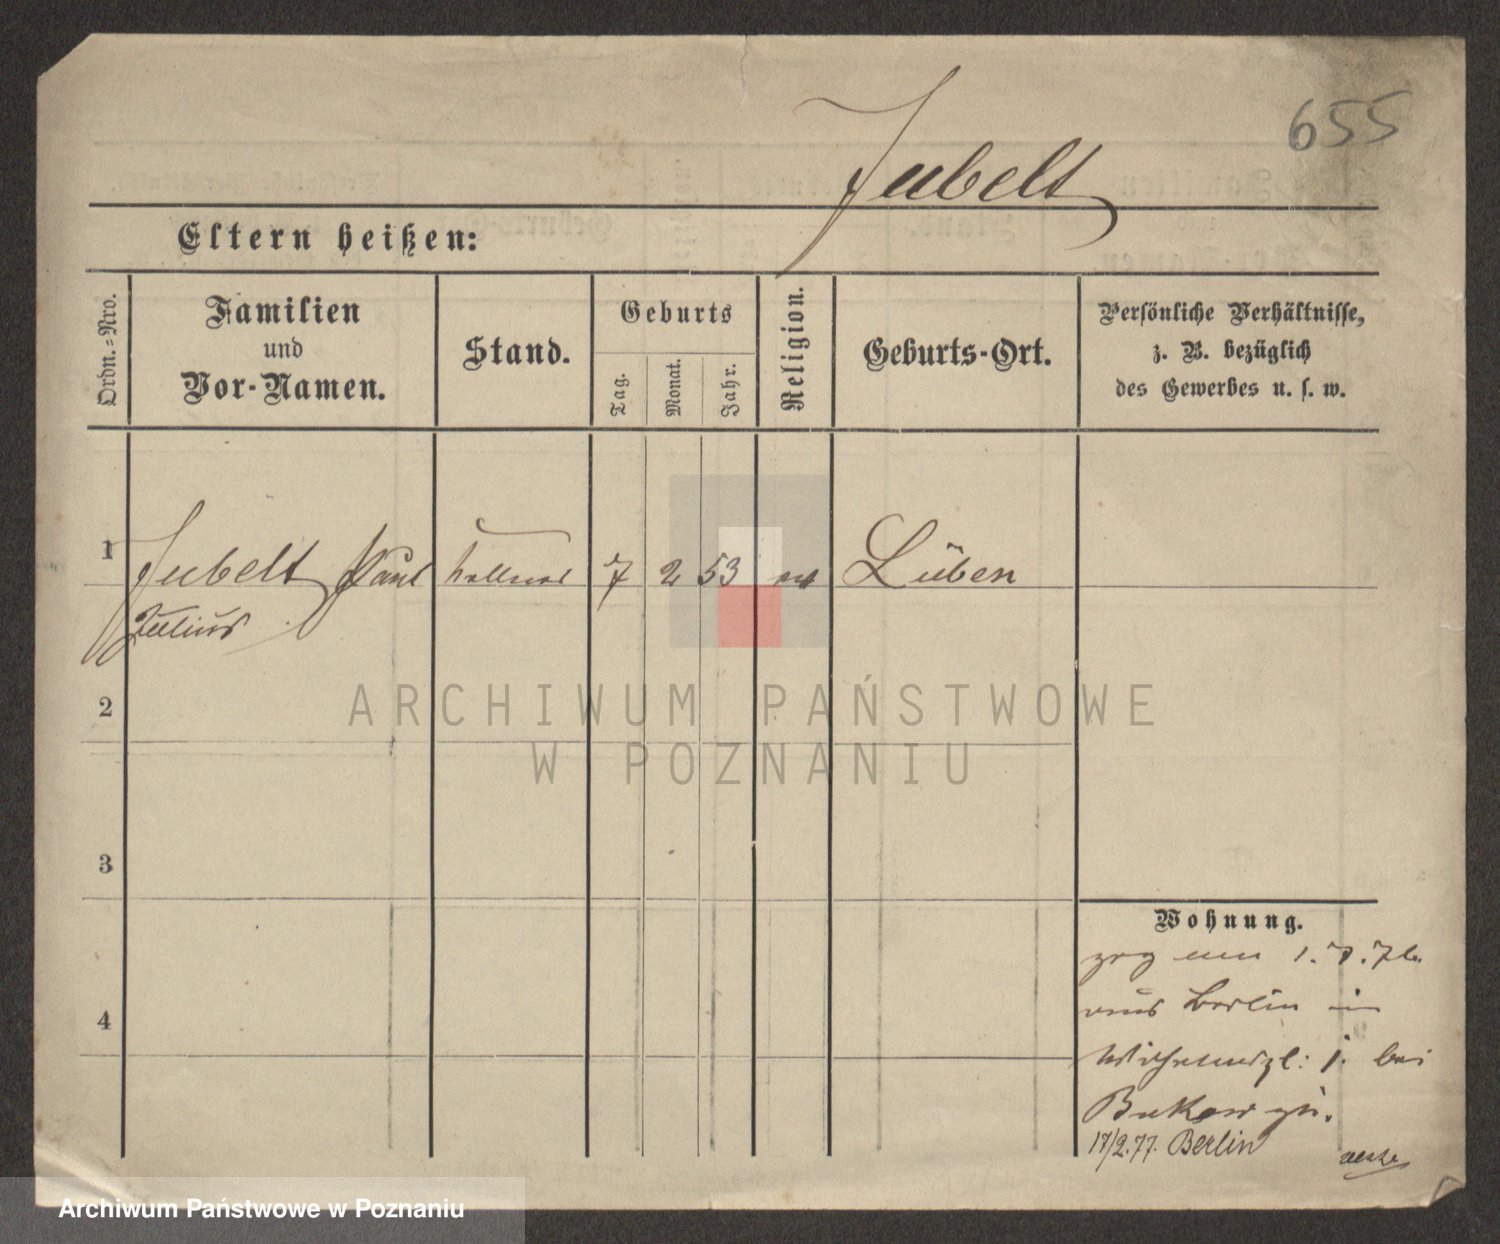 655
Jubelt
Eltern heißen:
Ordn.=Nro.
Familien
und
Vor-Namen.
Stand.
Geburts
Tag.
Monat.
Jahr.
Religion.
Geburts-Ort.
Persönliche Verhältnisse,
z. B. bezüglich
des Gewerbes u. s. w.
1
Jubelt Paul
Kellner
7
2
53
Lüben
Julius
2
3
4
Wohnung.
zog am 1. 7. 76.
aus Berlin in
bei
17/2.77. Berlin
ARCHIWUM PAŃSTWOWE
W POZNANIU
Archiwum Państwowe w Poznaniu